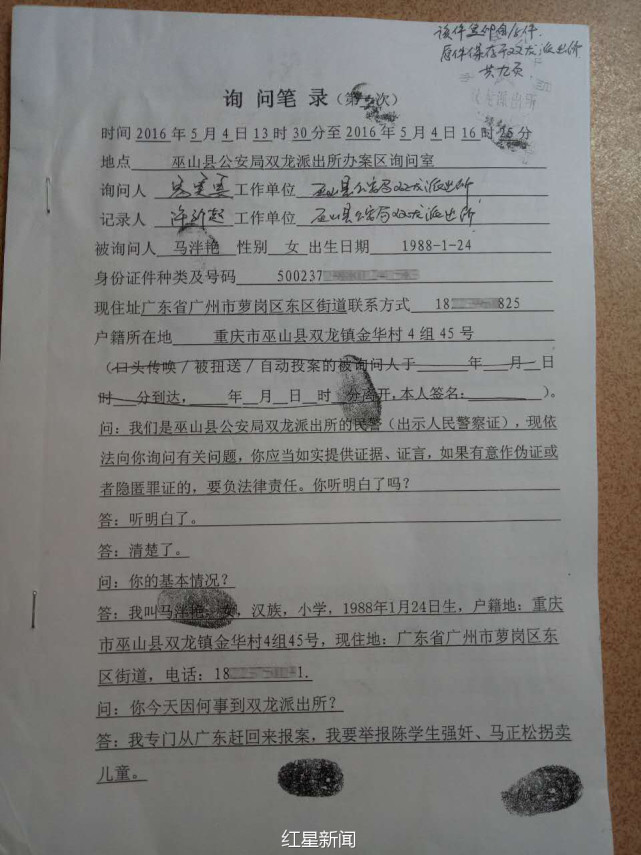 该件复印自原件.
原件保存于双龙派出所
共九页
双龙派出所
询 问 笔 录（第 次）
时间 2016 年 5 月 4 日 13 时 30 分至 2016 年 5 月 4 日 16 时 15 分
地点 巫山县公安局双龙派出所办案区询问室
询问人 工作单位 巫山县公安局双龙派出所
记录人 工作单位 巫山县公安局双龙派出所
被询问人 马泮艳 性别 女 出生日期 1988-1-24
身份证件种类及号码 500237
现住址广东省广州市萝岗区东区街道联系方式 18 825
户籍所在地 重庆市巫山县双龙镇金华村 4 组 45 号
（口头传唤／被扭送／自动投案的被询问人于 年 月 日
时 分到达， 年 月 日 时 分离开，本人签名： ）。
问：我们是巫山县公安局双龙派出所的民警（出示人民警察证），现依
法向你询问有关问题，你应当如实提供证据、证言，如果有意作伪证或
者隐匿罪证的，要负法律责任。你听明白了吗？
答：听明白了。
答：清楚了。
问：你的基本情况？
答：我叫马泮艳，女，汉族，小学，1988年1月24日生，户籍地：重庆
市巫山县双龙镇金华村4组45号，现住地：广东省广州市萝岗区东
区街道，电话：18 1.
问：你今天因何事到双龙派出所？
答：我专门从广东赶回来报案，我要举报陈学生强奸、马正松拐卖
儿童。
红星新闻